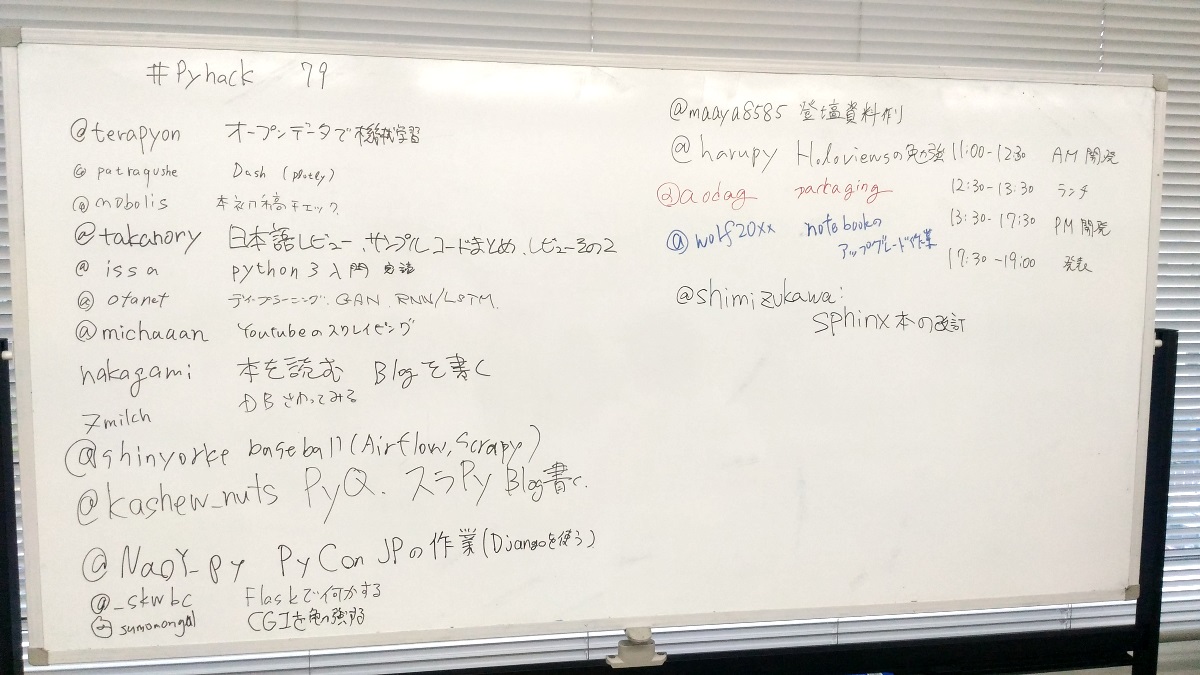 #Pyhack 79
@terapyon オープンデータで機械学習
@patraqushe Dash (plotly)
@mobolis 本初稿チェック
@takanory 日本語レビュー、サンプルコードまとめ、レビューその2
@issa python3入門
@otanet ディープラーニング、GAN、RNN/LSTM
@michaaan Youtubeのスクレイピング
nakagami 本を読む Blogを書く
7milch DBさわってみる
@shinyorke baseball(Airflow, Scrapy)
@kashew_nuts PyQ. スラPy Blog書く.
@NaoY_py PyCon JPの作業(Djangoを使う)
@_skwbc Flaskで何かする
@sumomongal CGIを勉強する
@maaya8585 登壇資料作り
@harupy Holoviewsの勉強
@aodag packaging
@wolf20xx notebookの
アップグレード作業
@shimizukawa:
sphinx本の改訂
11:00-12:30 AM開発
12:30-13:30 ランチ
13:30-17:30 PM開発
17:30-19:00 発表